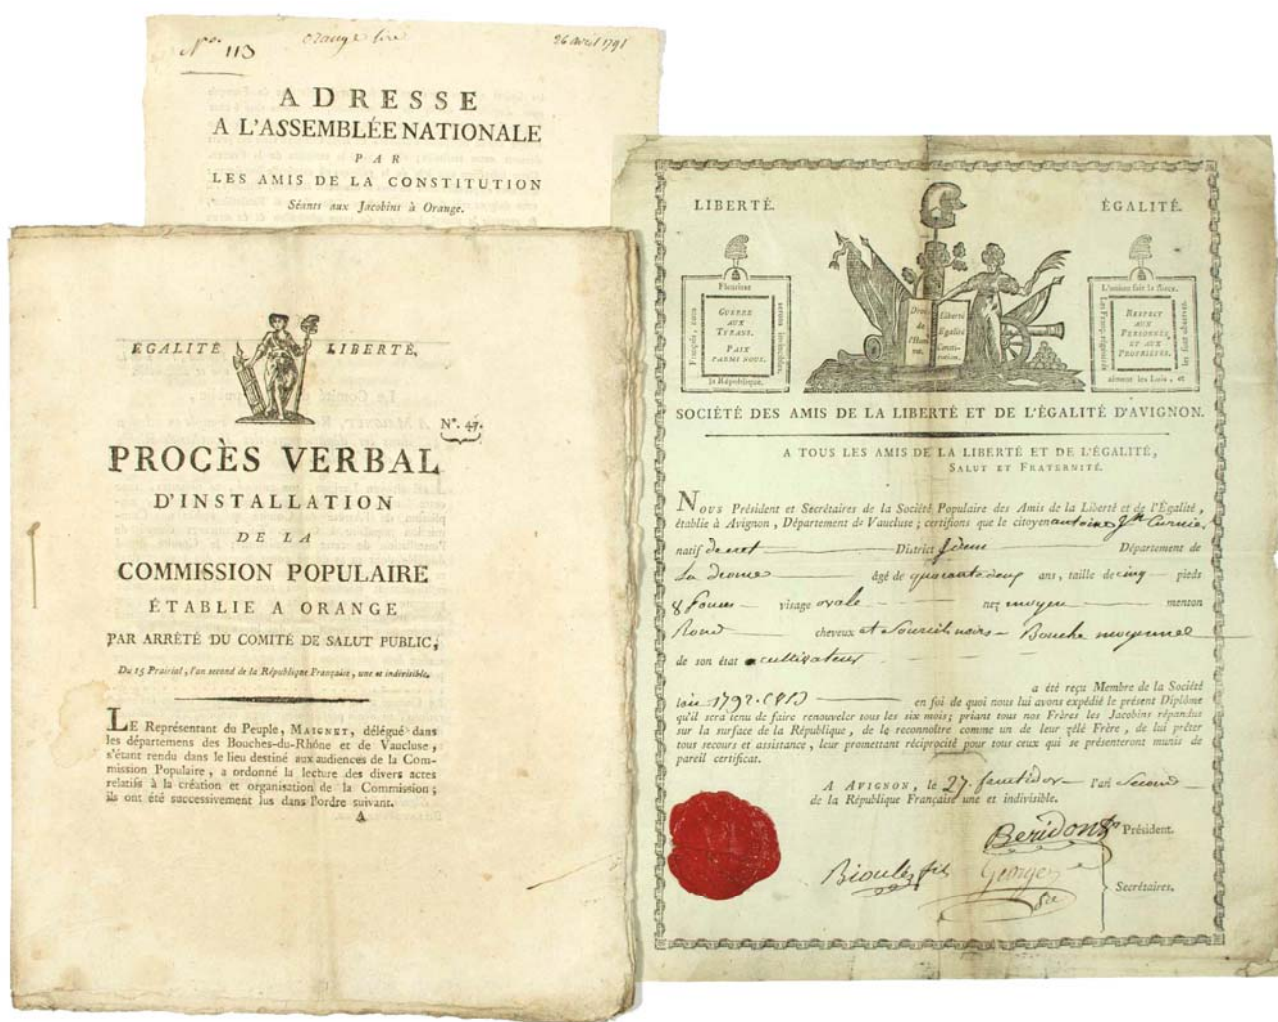 N.o 113 orange 26 avril 1791
ADRESSE
A L'ASSEMBLÉE NATIONALE
PAR
LES AMIS DE LA CONSTITUTION
Séants aux Jacobins à Orange.
EGALITÉ LIBERTÉ,
N°. 47.
PROCÈS VERBAL
D'INSTALLATION
DE LA
COMMISSION POPULAIRE
ÉTABLIE A ORANGE
PAR ARRÊTÉ DU COMITÉ DE SALUT PUBLIC;
Du 15 Prairial, l'an second de la République Française, une et indivisible.
LE Représentant du Peuple, MAIGNET, délégué dans
les départemens des Bouches-du-Rhône et de Vaucluse,
s'étant rendu dans le lieu destiné aux audiences de la Com-
mission Populaire, a ordonné la lecture des divers actes
relatifs à la création et organisation de la Commission;
ils ont été successivement lus dans l'ordre suivant.
A
LIBERTÉ. ÉGALITÉ.
Fleurisse
GUERRE
AUX
TYRANS.
PAIX
PARMI NOUS.
Français, nous
serons invincibles.
la République.
Droits
de
l'Hom-
me.
Liberté
Egalité
Consti-
tution.
L'union fait la force.
RESPECT
AUX
PERSONNES,
ET AUX
PROPRIÉTÉS.
Les Français régénérés
les font observer.
aiment les Lois, et
SOCIÉTÉ DES AMIS DE LA LIBERTÉ ET DE L'ÉGALITÉ D'AVIGNON.
A TOUS LES AMIS DE LA LIBERTÉ ET DE L'ÉGALITÉ,
SALUT ET FRATERNITÉ.
NOUS Président et Secrétaires de la Société Populaire des Amis de la Liberté et de l'Égalité,
établie à Avignon, Département de Vaucluse; certifions que le citoyen antoine Jh Curnier
natif de District Département de
La drome âgé de quarante deux ans, taille de cinq pieds
8 Pouces visage ovale nez moyen menton
Rond cheveux et Sourcils noirs Bouche moyenne
de son état cultivateur
a été reçu Membre de la Société
1792. en foi de quoi nous lui avons expédié le présent Diplôme
qu'il sera tenu de faire renouveler tous les six mois; priant tous nos Frères les Jacobins répandus
sur la surface de la République, de le reconnoître comme un de leur zélé Frère, de lui prêter
tous secours et assistance, leur promettant réciprocité pour tous ceux qui se présenteront munis de
pareil certificat.
A AVIGNON, le 27. fructidor l'an Second
de la République Française une et indivisible.
Président.
George
Secrétaires.